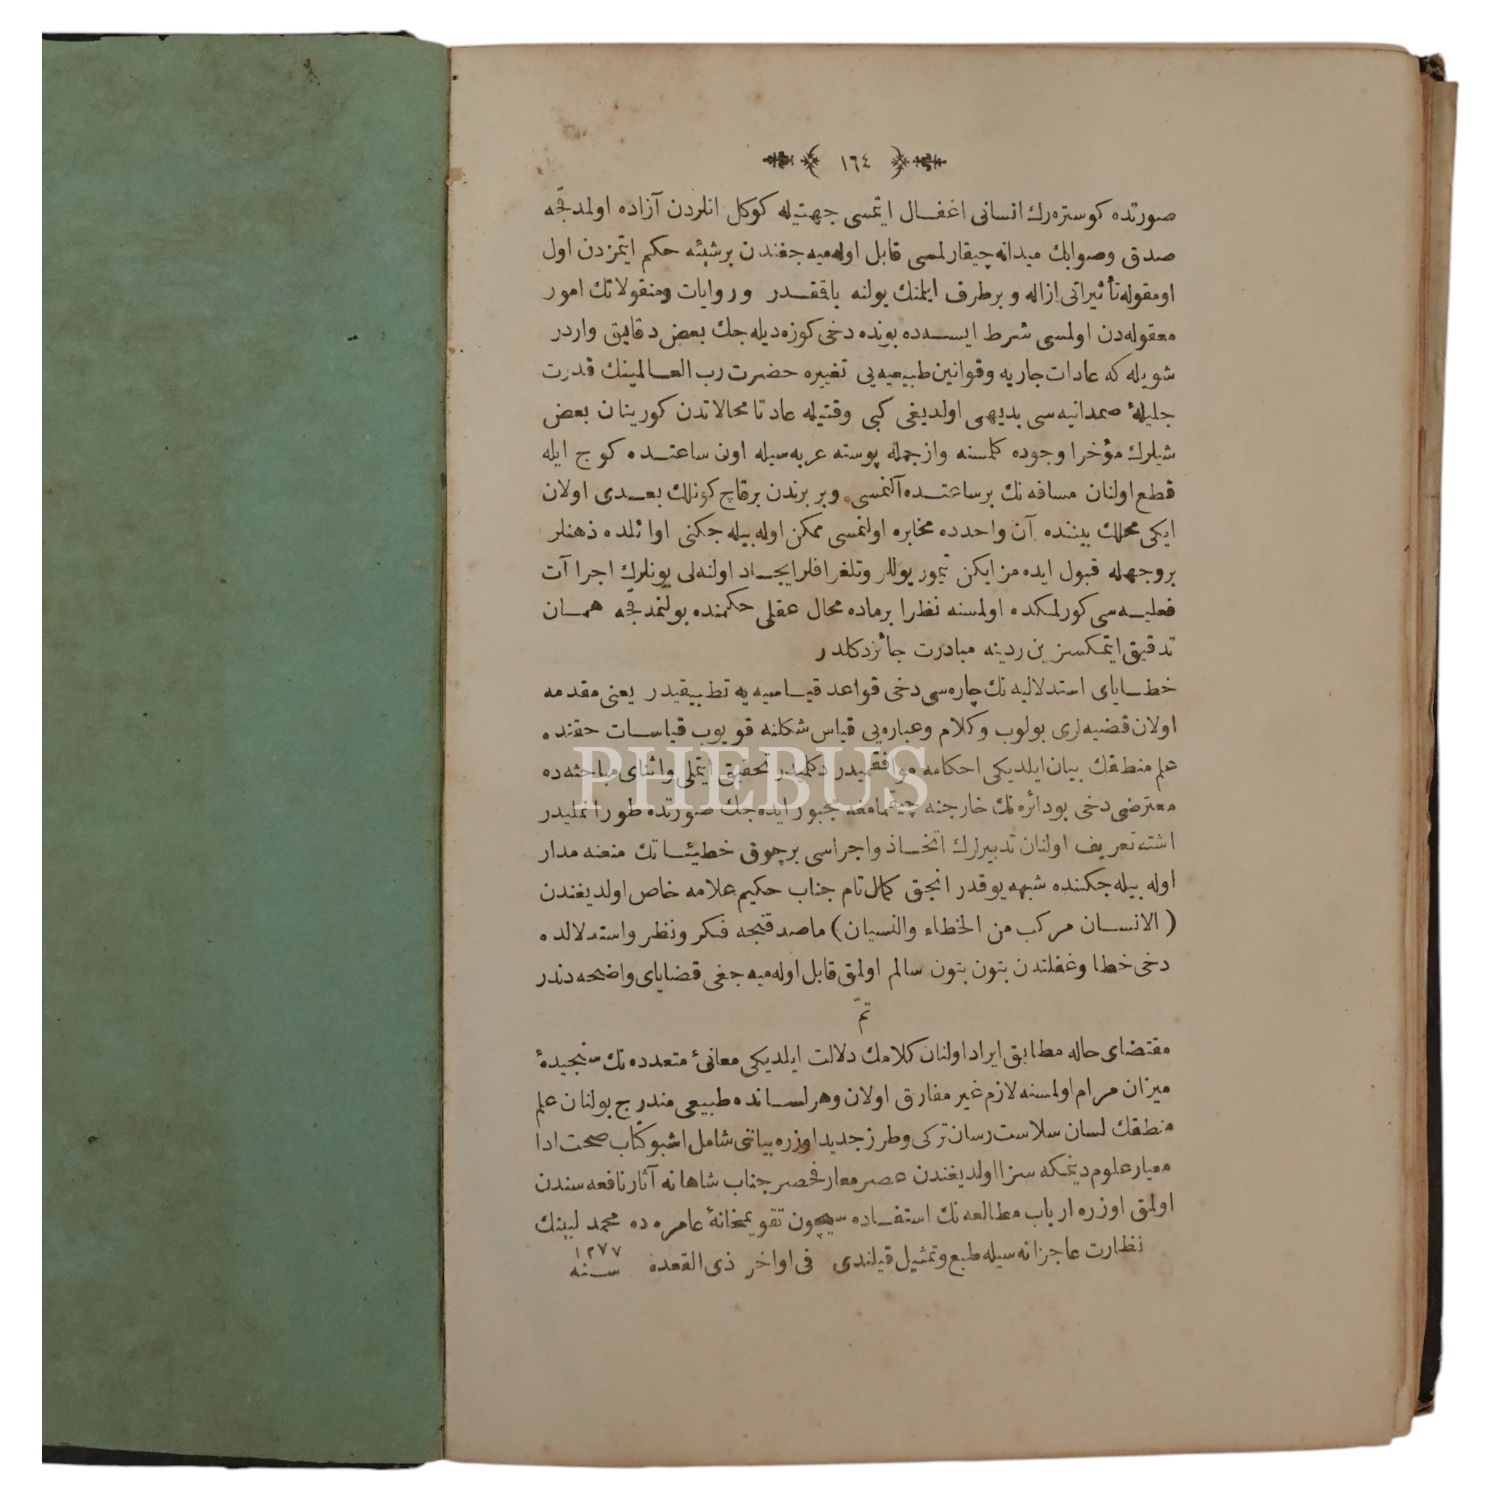 ١٦٤
صورتده كوستره‌رك انسانی اغفال ایتمسی جهتیله كوكل انلردن آزاده اولمدقجه
صدق وصوابك میدانه چیقارلمسی قابل اوله‌میه‌جغندن برشیئه حكم ایتمزدن اول
اومقوله تأثیراتی ازاله و برطرف ایلمنك یولنه باققدر و روایات ومنقولاتك امور
معقوله‌دن اولمسی شرط ایسه‌ده بونده دخی كوزه‌دیله‌جك بعض دقایق واردر
شویله‌كه عادات جاریه وقوانین طبیعیه‌یی تغییره حضرت رب العالمینك قدرت
جلیلهٔ صمدانیه‌سی بدیهی اولدیغی كبی وقتیله عادتا محالاتدن كورینان بعض
شیلرك مؤخرا وجوده كلمسنه وازجمله پوسته عربه‌سیله اون ساعتده كوج ایله
قطع اولنان مسافه‌نك برساعتده آلنمسی وبر برندن برقاچ كونلك بعدی اولان
ایكی محلك بیننده آن واحدده مخابره اولنمسی ممكن اوله‌بیله‌جكنی اوائلده ذهنلر
بروجهله قبول ایده‌مز ایكن تیمور یوللر وتلغرافلر ایجاد اولنه‌لی بونلرك اجراآت
فعلیه‌سی كورلمكده اولمسنه نظرا برماده محال عقلی حكمنده بولنمدقجه همان
تدقیق ایتمكسزین ردینه مبادرت جائز دكلدر
خطایای استدلالیه‌نك چاره‌سی دخی قواعد قیاسیه‌یه تطبیقیدر یعنی مقدمه
اولان قضیه‌لری بولوب وكلام وعباره‌یی قیاس شكلنه قویوب قیاسات حقنده
علم منطقك بیان ایلدیكی احكامه موافقمیدر دكلمیدر تحقیق ایتملی واثنای مباحثه‌ده
معترضی دخی بودائره‌نك خارجنه چیقمامغه مجبور ایده‌جك صورتده طورانملیدر
اشته تعریف اولنان تدبیرلرك اتخاذ واجراسی برچوق خطیئاتك منعنه مدار
اوله بیله‌جكنده شبهه یوقدر انجق كمال تام جناب حكیم علامه خاص اولدیغندن
(الانسان مركب من الخطاء والنسیان) ماصدقنجه فكر ونظر واستدلالده
دخی خطا وغفلتدن بتون بتون سالم اولمق قابل اوله‌میه‌جغی قضایای واضحه‌دندر
تمّ
مقتضای حاله مطابق ایراد اولنان كلامك دلالت ایلدیكی معانیٔ متعدده‌نك سنجیدهٔ
میزان مرام اولمسنه لازم غیر مفارق اولان وهر لسانده طبیعی مندرج بولنان علم
منطقك لسان سلاست‌رسان تركی وطرز جدید اوزره بیاننی شامل اشبو كتاب صحت‌ادا
معیار علوم دینمكه سزا اولدیغندن عصر معارفحصر جناب شاهانه آثار نافعه‌سندن
اولمق اوزره ارباب مطالعه‌نك استفاده‌سیچون تقویمخانهٔ عامره‌ده محمد لبیبك
نظارت عاجزانه‌سیله طبع وتمثیل قیلندی فی اواخر ذی القعده سنه ١٢٧٧
PHEBUS